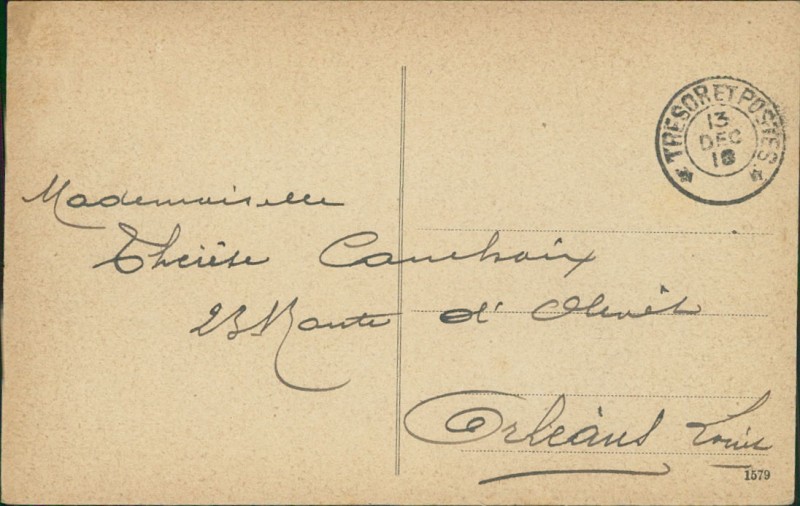 TRESOR ET POSTES.
13
DEC
18
Mademoiselle
Thérèse Cauchoix
23 Route d' Olivêt
Orléans Loiret
1579